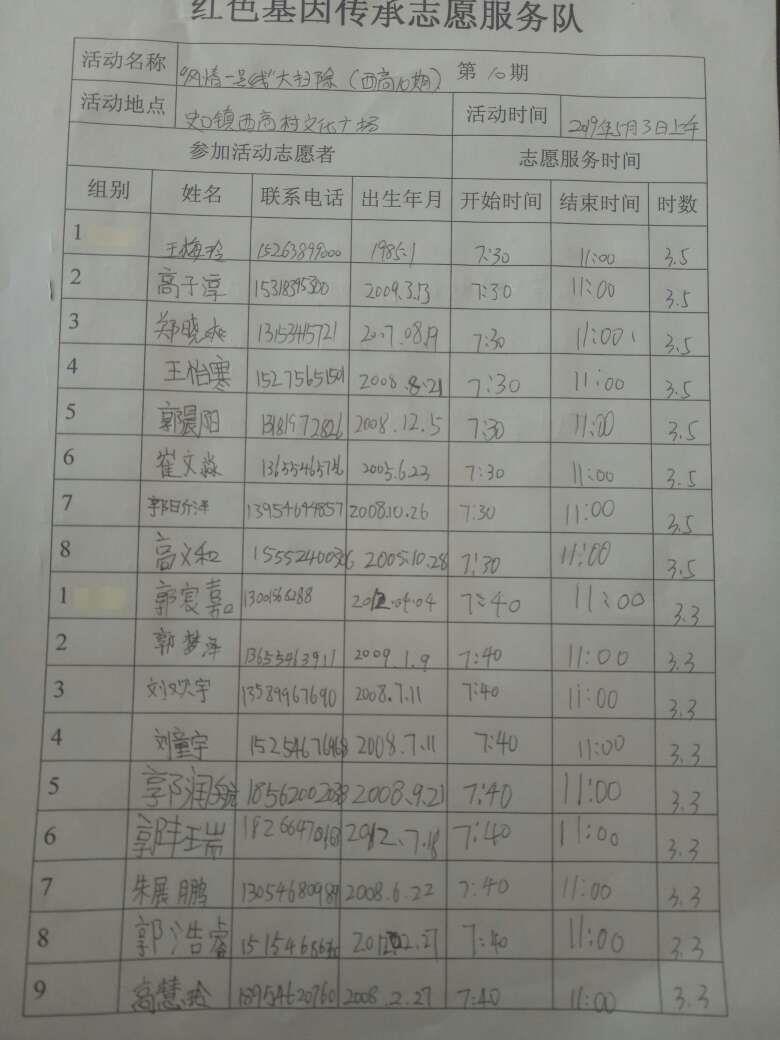 红色基因传承志愿服务队
活动名称 "风情一号线"大扫除（西高10期） 第 10 期
活动地点 史口镇西商村文化广场 活动时间 2019年5月3日上午
参加活动志愿者 志愿服务时间
组别 姓名 联系电话 出生年月 开始时间 结束时间 时数
1 王梅玲 15263899000 1985.1 7:30 11:00 3.5
2 高子淳 15318395300 2009.3.13 7:30 11:00 3.5
3 郑晓 13153415721 7:30 11:00 3.5
4 王怡寒 15275651501 2008.8.21 7:30 11:00 3.5
5 郭晨阳 13181972826 2008.12.5 7:30 11:00 3.5
6 崔文淼 2005.6.23 7:30 11:00 3.5
7 郭 13954694857 2008.10.26 7:30 11:00 3.5
8 高文和 2005.10.28 7:30 11:00 3.5
1 郭宸嘉 2012.04.04 7:40 11:00 3.3
2 郭梦泽 13655463911 2009.1.9 7:40 11:00 3.3
3 刘欢宇 13589967690 2008.7.11 7:40 11:00 3.3
4 刘童宇 15254676968 2008.7.11 7:40 11:00 3.3
5 郭润航 18562002038 2008.9.21 7:40 11:00 3.3
6 2012.7.18 7:40 11:00 3.3
7 朱展鹏 13054680989 2008.6.22 7:40 11:00 3.3
8 郭浩睿 7:40 11:00 3.3
9 高慧玲 18954620760 2008.2.27 7:40 11:00 3.3